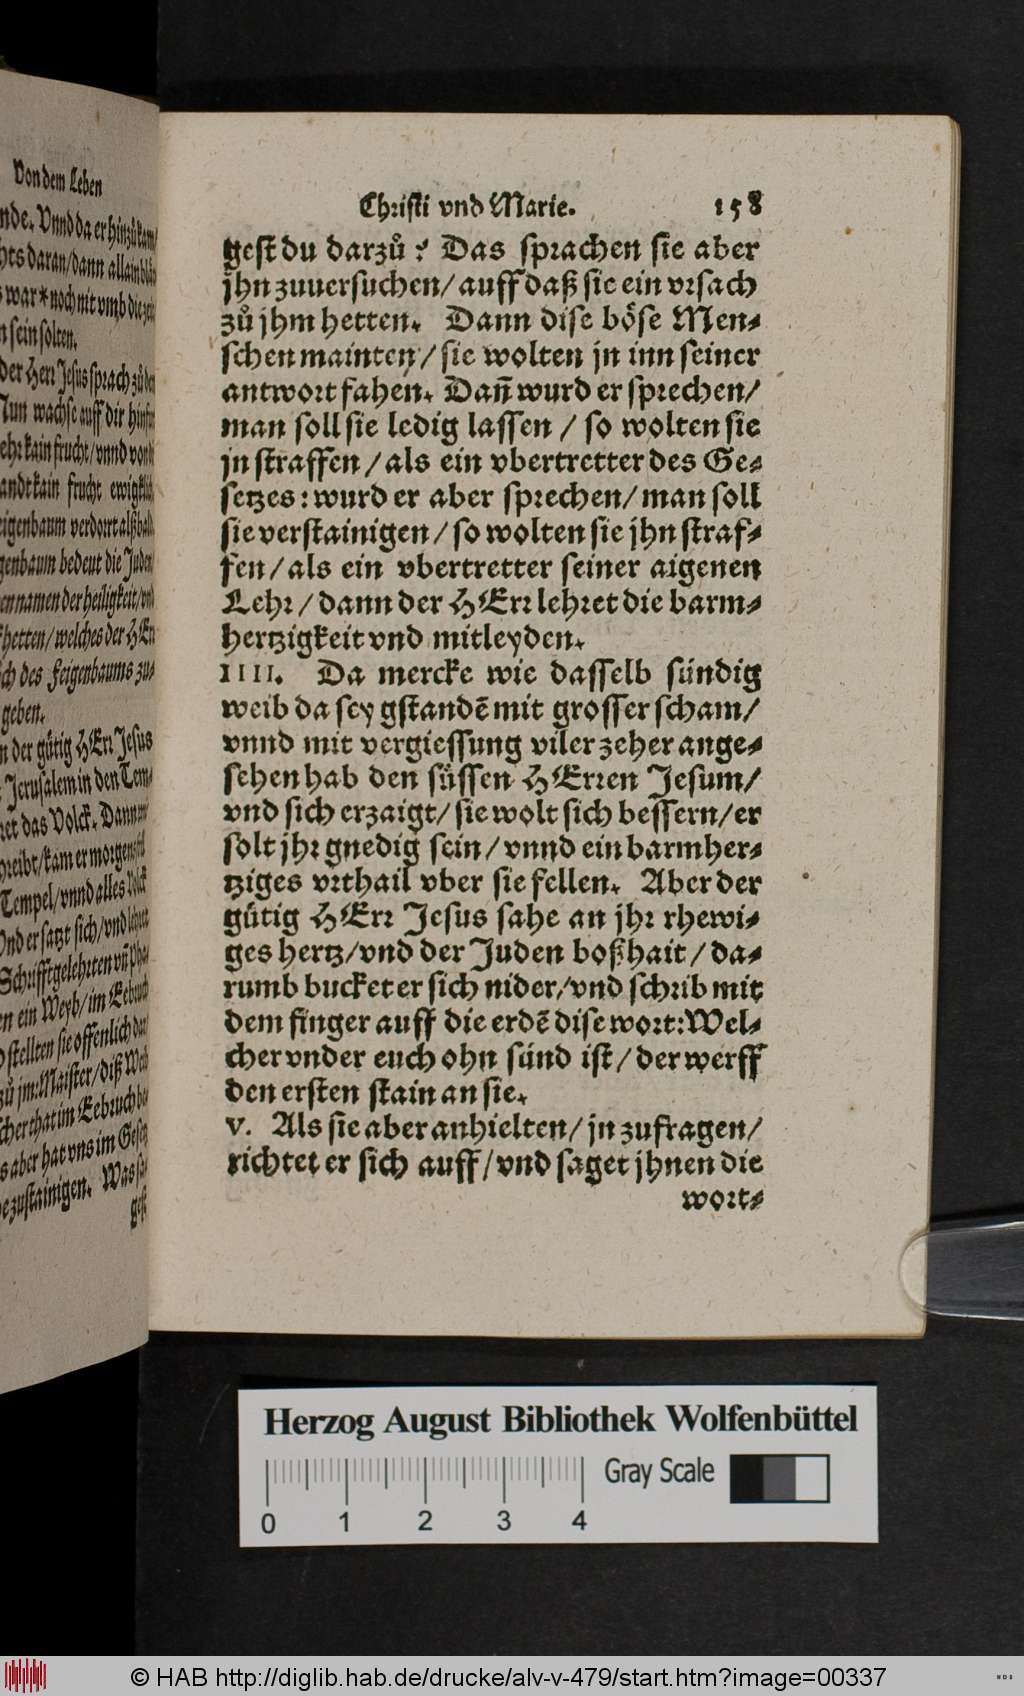 Von dem Leben
nde. Vnnd da er hinzů kam/
chts daran/dann allain blå
s war * noch nit vmb die zeit
n sein solten.
der Herr Jesus sprach zů dem
Nun wachse auff dir hinfur
mehr kain frucht/vnnd von
frucht ewigklich
eigenbaum verdorrt alßbald
genbaum bedeut die Juden
en namen der heiligkeit/vnd
hetten/welches der HErr
ch des Feigenbaums zu-
geben.
n der gůtig HErr Jesus
Jerusalem in den Tem-
ret das Volck. Dann
hreibt/kam er morgens
Tempel/vnnd alles Volck
Vnd er satzt sich/vnd lehret
Schrifftgelehrten vñ Pha-
en ein Weyb/im Eebruch
stellten sie offenlich dar
zů jm: Maister/diß Weib
that im Eebruch be
s aber hat vns im Gesetz
zustainigen. Was sa-
gest
Christi vnd Marie. 158
gest du darzů? Das sprachen sie aber
jhn zuuersuchen/auff daß sie ein vrsach
zů jhm hetten. Dann dise böse Men-
schen mainten/sie wolten jn inn seiner
antwort fahen. Dañ wurd er sprechen/
man soll sie ledig lassen/so wolten sie
jn straffen/als ein vbertretter des Ge-
setzes: wurd er aber sprechen/man soll
sie verstainigen/so wolten sie jhn straf-
fen/als ein vbertretter seiner aigenen
Lehr/dann der HErr lehret die barm-
hertzigkeit vnd mitleyden.
IIII. Da mercke wie dasselb sündig
weib da sey gstandẽ mit grosser scham/
vnnd mit vergiessung viler zeher ange-
sehen hab den süssen HErren Jesum/
vnd sich erzaigt/sie wolt sich bessern/er
solt jhr gnedig sein/vnnd ein barmher-
tziges vrthail vber sie fellen. Aber der
gütig HErr Jesus sahe an jhr rhewi-
ges hertz/vnd der Juden boßhait/da-
rumb bucket er sich nider/vnd schrib mit
dem finger auff die erdẽ dise wort: Wel-
cher vnder euch ohn sünd ist/der werff
den ersten stain an sie.
V. Als sie aber anhielten/jn zufragen/
richtet er sich auff/vnd saget jhnen die
wort-
Herzog August Bibliothek Wolfenbüttel
Gray Scale
0 1 2 3 4
© HAB http://diglib.hab.de/drucke/alv-v-479/start.htm?image=00337